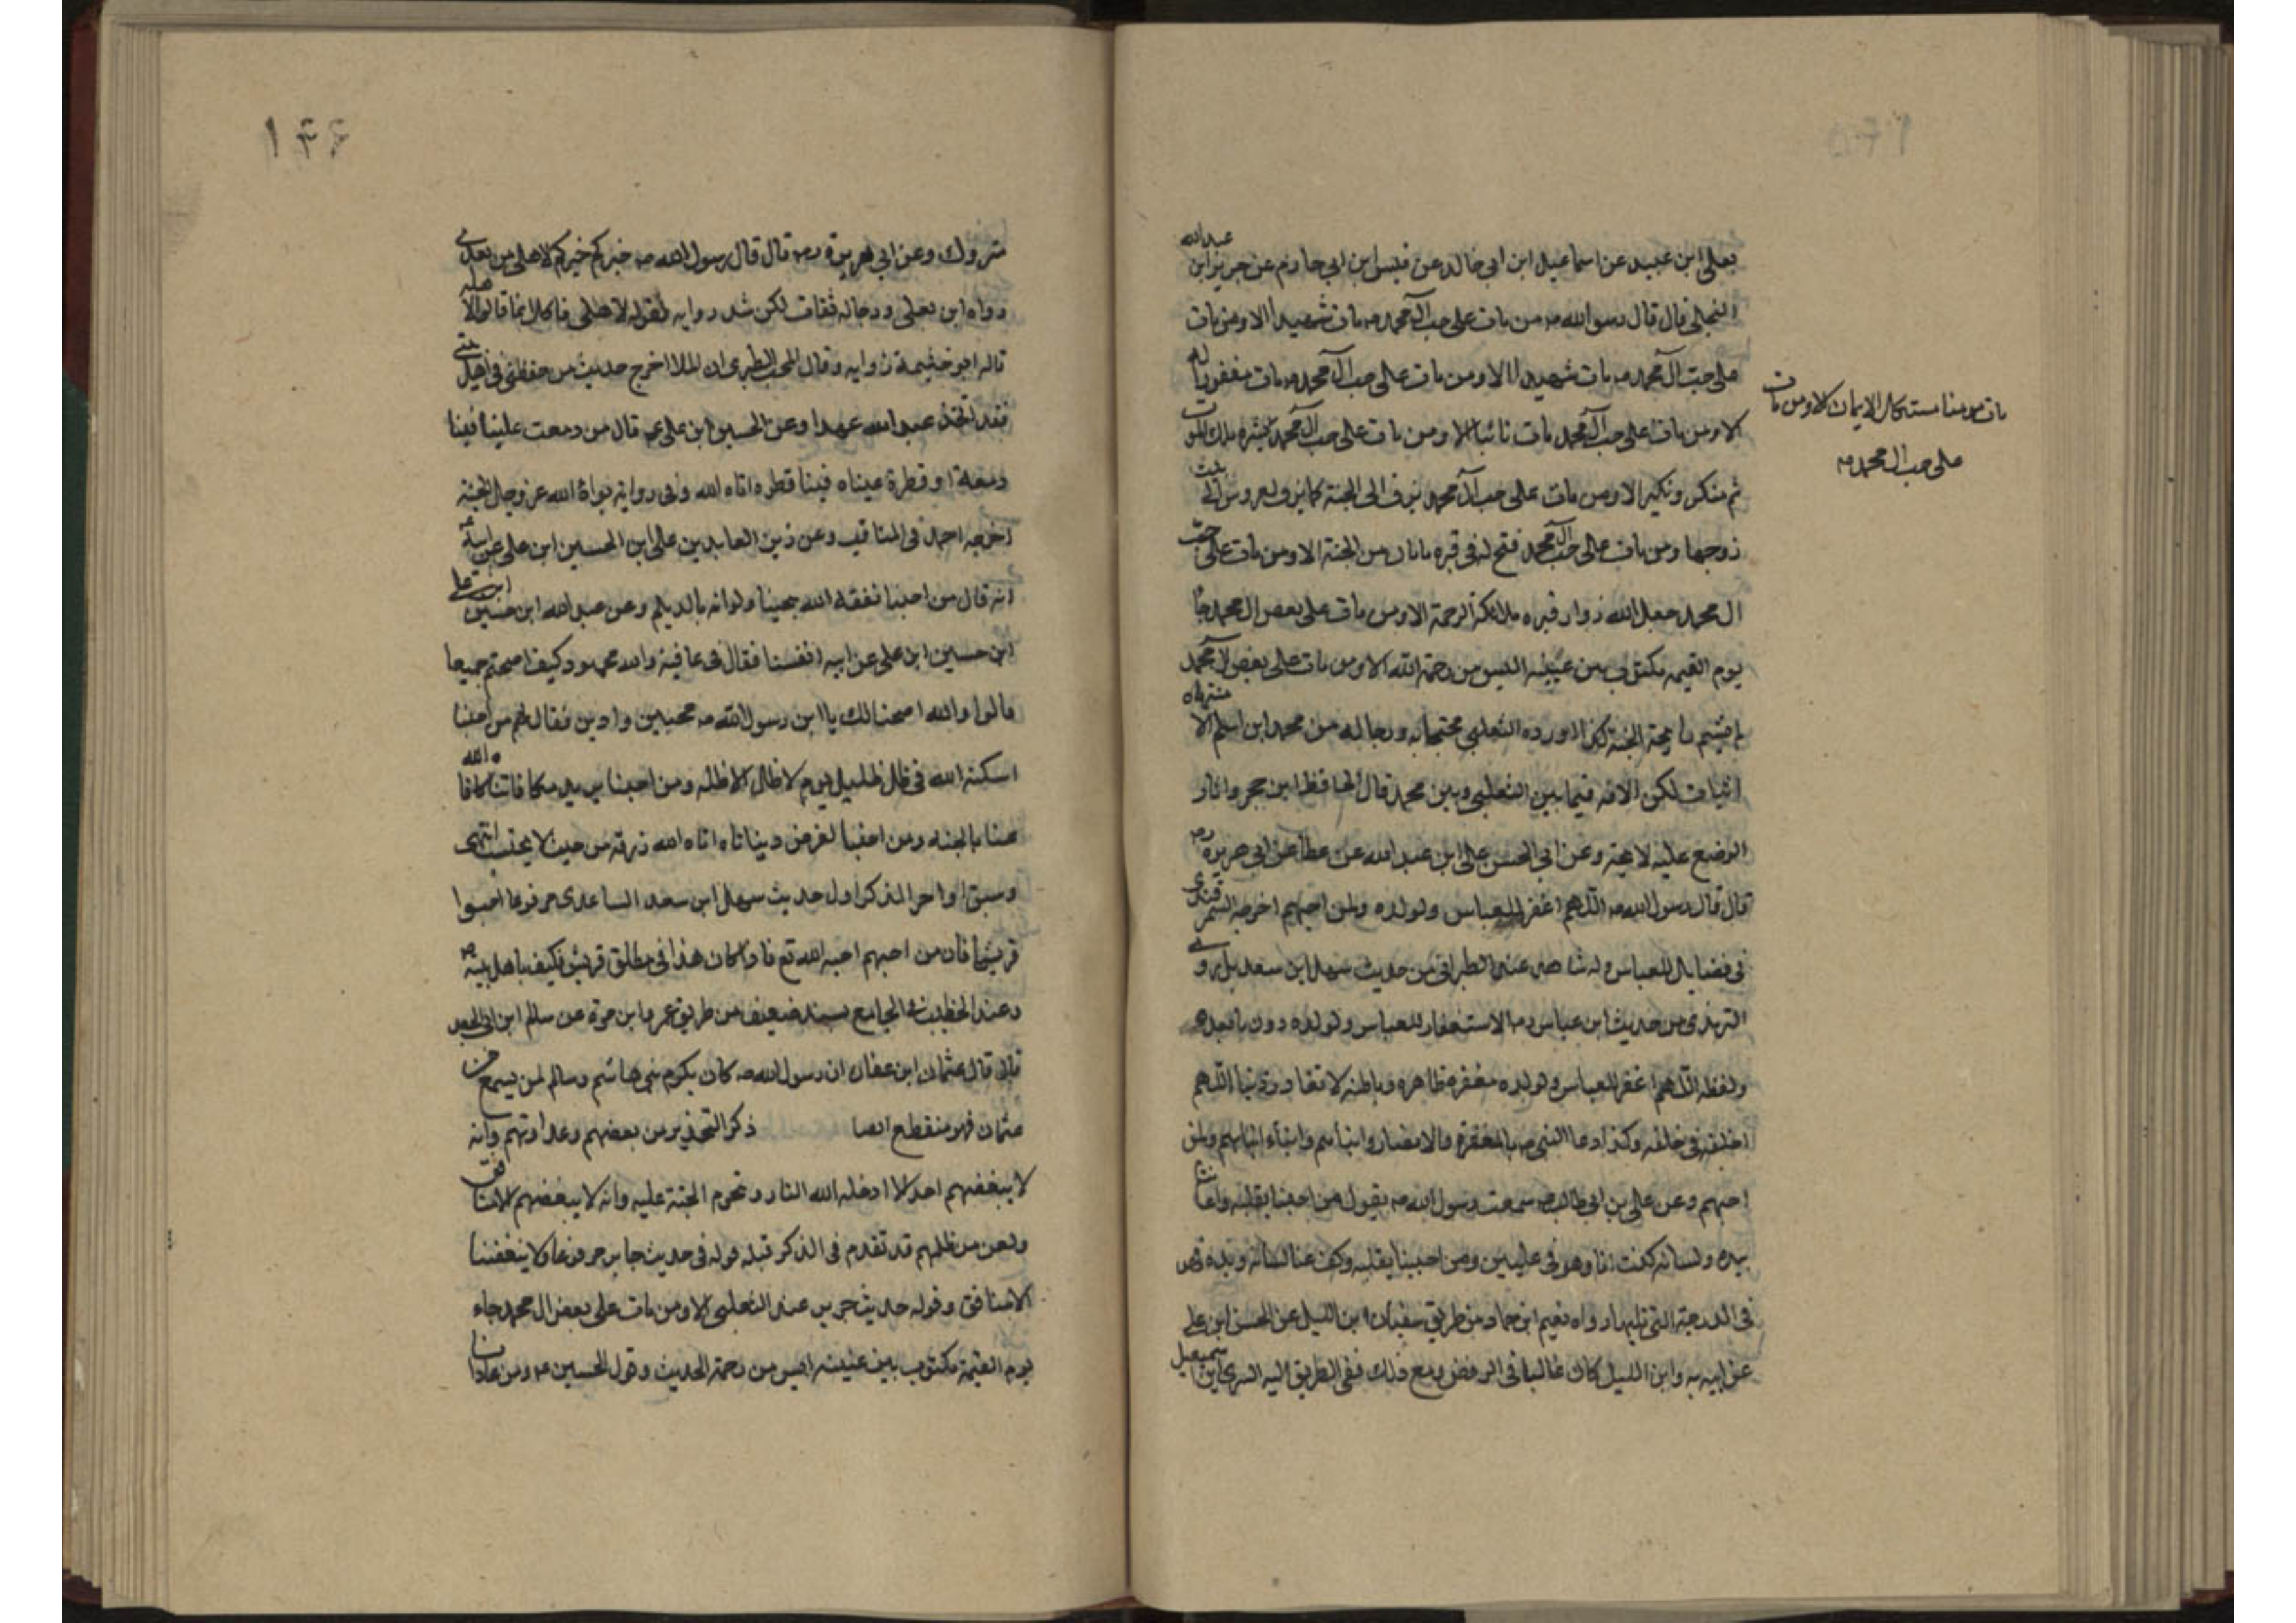 ١٣٥
عبد الله
يعلى ابن عبيد عن اسماعيل ابن ابي خالد عن قيس ابن ابي حازم عن جرير ابن
البجلي قال قال رسول الله صه من مات على حب آل محمد صه مات شهيدا الا ومن مات
على حب آل محمد صه مات شهيدا الا ومن مات على حب آل محمد صه مات مغفورا له
الا ومن مات على حب آل محمد مات تائبا الا ومن مات على حب آل محمد بشره ملك الموت
ثم منكر ونكير الا ومن مات على حب آل محمد يزف الى الجنة كما يزف العروس الى بيت
زوجها ومن مات على حب آل محمد فتح له في قبره بابان من الجنة الا ومن مات على حب
ال محمد جعل الله زوار قبره ملائكة الرحمة الا ومن مات على بعض ال محمد جا
يوم القيمه مكتوب بين عينيه اليس من رحمة الله الا ومن مات على بغض ال محمد
لم يشم رايحة الجنة كذا اورده الثعلبي محتجا به ورجاله من محمد ابن اسلم الا منتهاه
اثبات لكن الافه فيما بين الثعلبي وبين محمد قال الحافظ ابن حجر واثار
الوضع عليه لايحة وعن ابي الحسن على ابن عبد الله عن عطا عن ابي هريرة رضه
قال قال رسول الله صه اللهم اغفر للعباس ولولده ولمن احبهم اخرجه السمرقندي
في فضايل العباس وله شاهد عند الطبراني من حديث سهل ابن سعد بل يروى
الترمذي من حديث ابن عباس رضه الاستغفار للعباس ولولده دون ما بعده
ولفظه اللهم اغفر للعباس ولولده مغفرة ظاهره وباطنه لا تغادر ذنبا اللهم
اخلفه في خلفه وكذا دعا النبي صه بالمغفرة والانصار وابنائهم وابناء ابنائهم ولمن
احبهم وعن على بن ابي طالب سمعت رسول الله صه يقول من احبنا بقلبه واعاننا
بيده ولسانه كنت انا وهو في عليين ومن احبنا بقلبه وكف عنا لسانه ويده فهو
في الدرجة التي تليها رواه نعيم ابن حماد من طريق سفيان ابن الليل عن الحسن ابن على
عن ابيه به وابن الليل كان غالبا في الرفض ومع ذلك ففي الطريق اليه السري ابن اسمعيل
مات مؤمنا مستكمل الايمان الا ومن مات
على حب ال محمد صه
١٣٦
متروك وعن ابي هريرة رضه قال قال رسول الله صه خيركم خيركم لاهلى من بعدي
رواه ابن يعلى ورجاله ثقات لكن شذ روايه بقوله لاهلى فالكل انما قالوا لاهله
قاله ابو خثيمة وقال المحب الطبرى ان الملا اخرج حديث من حفظني في اهل بيتي
فقد اتخذ عند الله عهدا وعن الحسين ابن على ع قال من دمعت عليناه فينا
دمعة او قطرة عيناه فينا قطره اتاه الله وفي رواية بواة الله عز وجل الجنة
اخرجه احمد في المناقب وعن زين العابدين على ابن الحسين ابن على عن ابيه ع
انه قال من احبنا نفقه الله بحبنا ولو انه بالديلم وعن عبد الله ابن حسين ابن على
ابن حسين ابن على عن ابيه انفسنا فقال في عافية والله محمود كيف اصبحتم جميعا
قالوا والله اصبحنا لك يا ابن رسول الله صه محبين وادين فقال لهم من احبنا
اسكنه الله في ظل ظليل يوم لا ظل الا ظله ومن احبنا يريد مكافاتنا كافاه الله
عنا بالجنه ومن احبنا لغرض دنيانا اتاه الله رزقه من حيث لا يحتسب انتهى
وسبق اواخر الذكر اول حديث سهل ابن سعد الساعدى مرفوعا احبوا
قريشا فان من احبهم احبه الله تع فاذا كان هذا في مطلق قريش فكيف باهل بيته صه
وعند الخطيب في الجامع بسند ضعيف من طريق عمر ابن مرة عن سالم ابن ابي الجعد
قال قال عثمان ابن عفان ان رسول الله صه كان يكرم بني هاشم وسالم لمن يسمع من
عثمان فهو منقطع ايضا ذكر التحذير من بعضهم وعداوتهم وانه
لا يبغضهم احد الا ادخله الله النار وتحرم الجنة عليه وانه لا يبغضهم الا منافق
ولعن من ظلمهم قد تقدم في الذكر قبله قوله في حديث جابر مرفوعا ولا يبغضنا
الا منافق وقوله حديث جرير عند الثعلبي الا ومن مات على بعض ال محمد جاء
يوم القيمة مكتوب بين عينيه ايس من رحمة الحديث وقول الحسين ع ومن عادانا